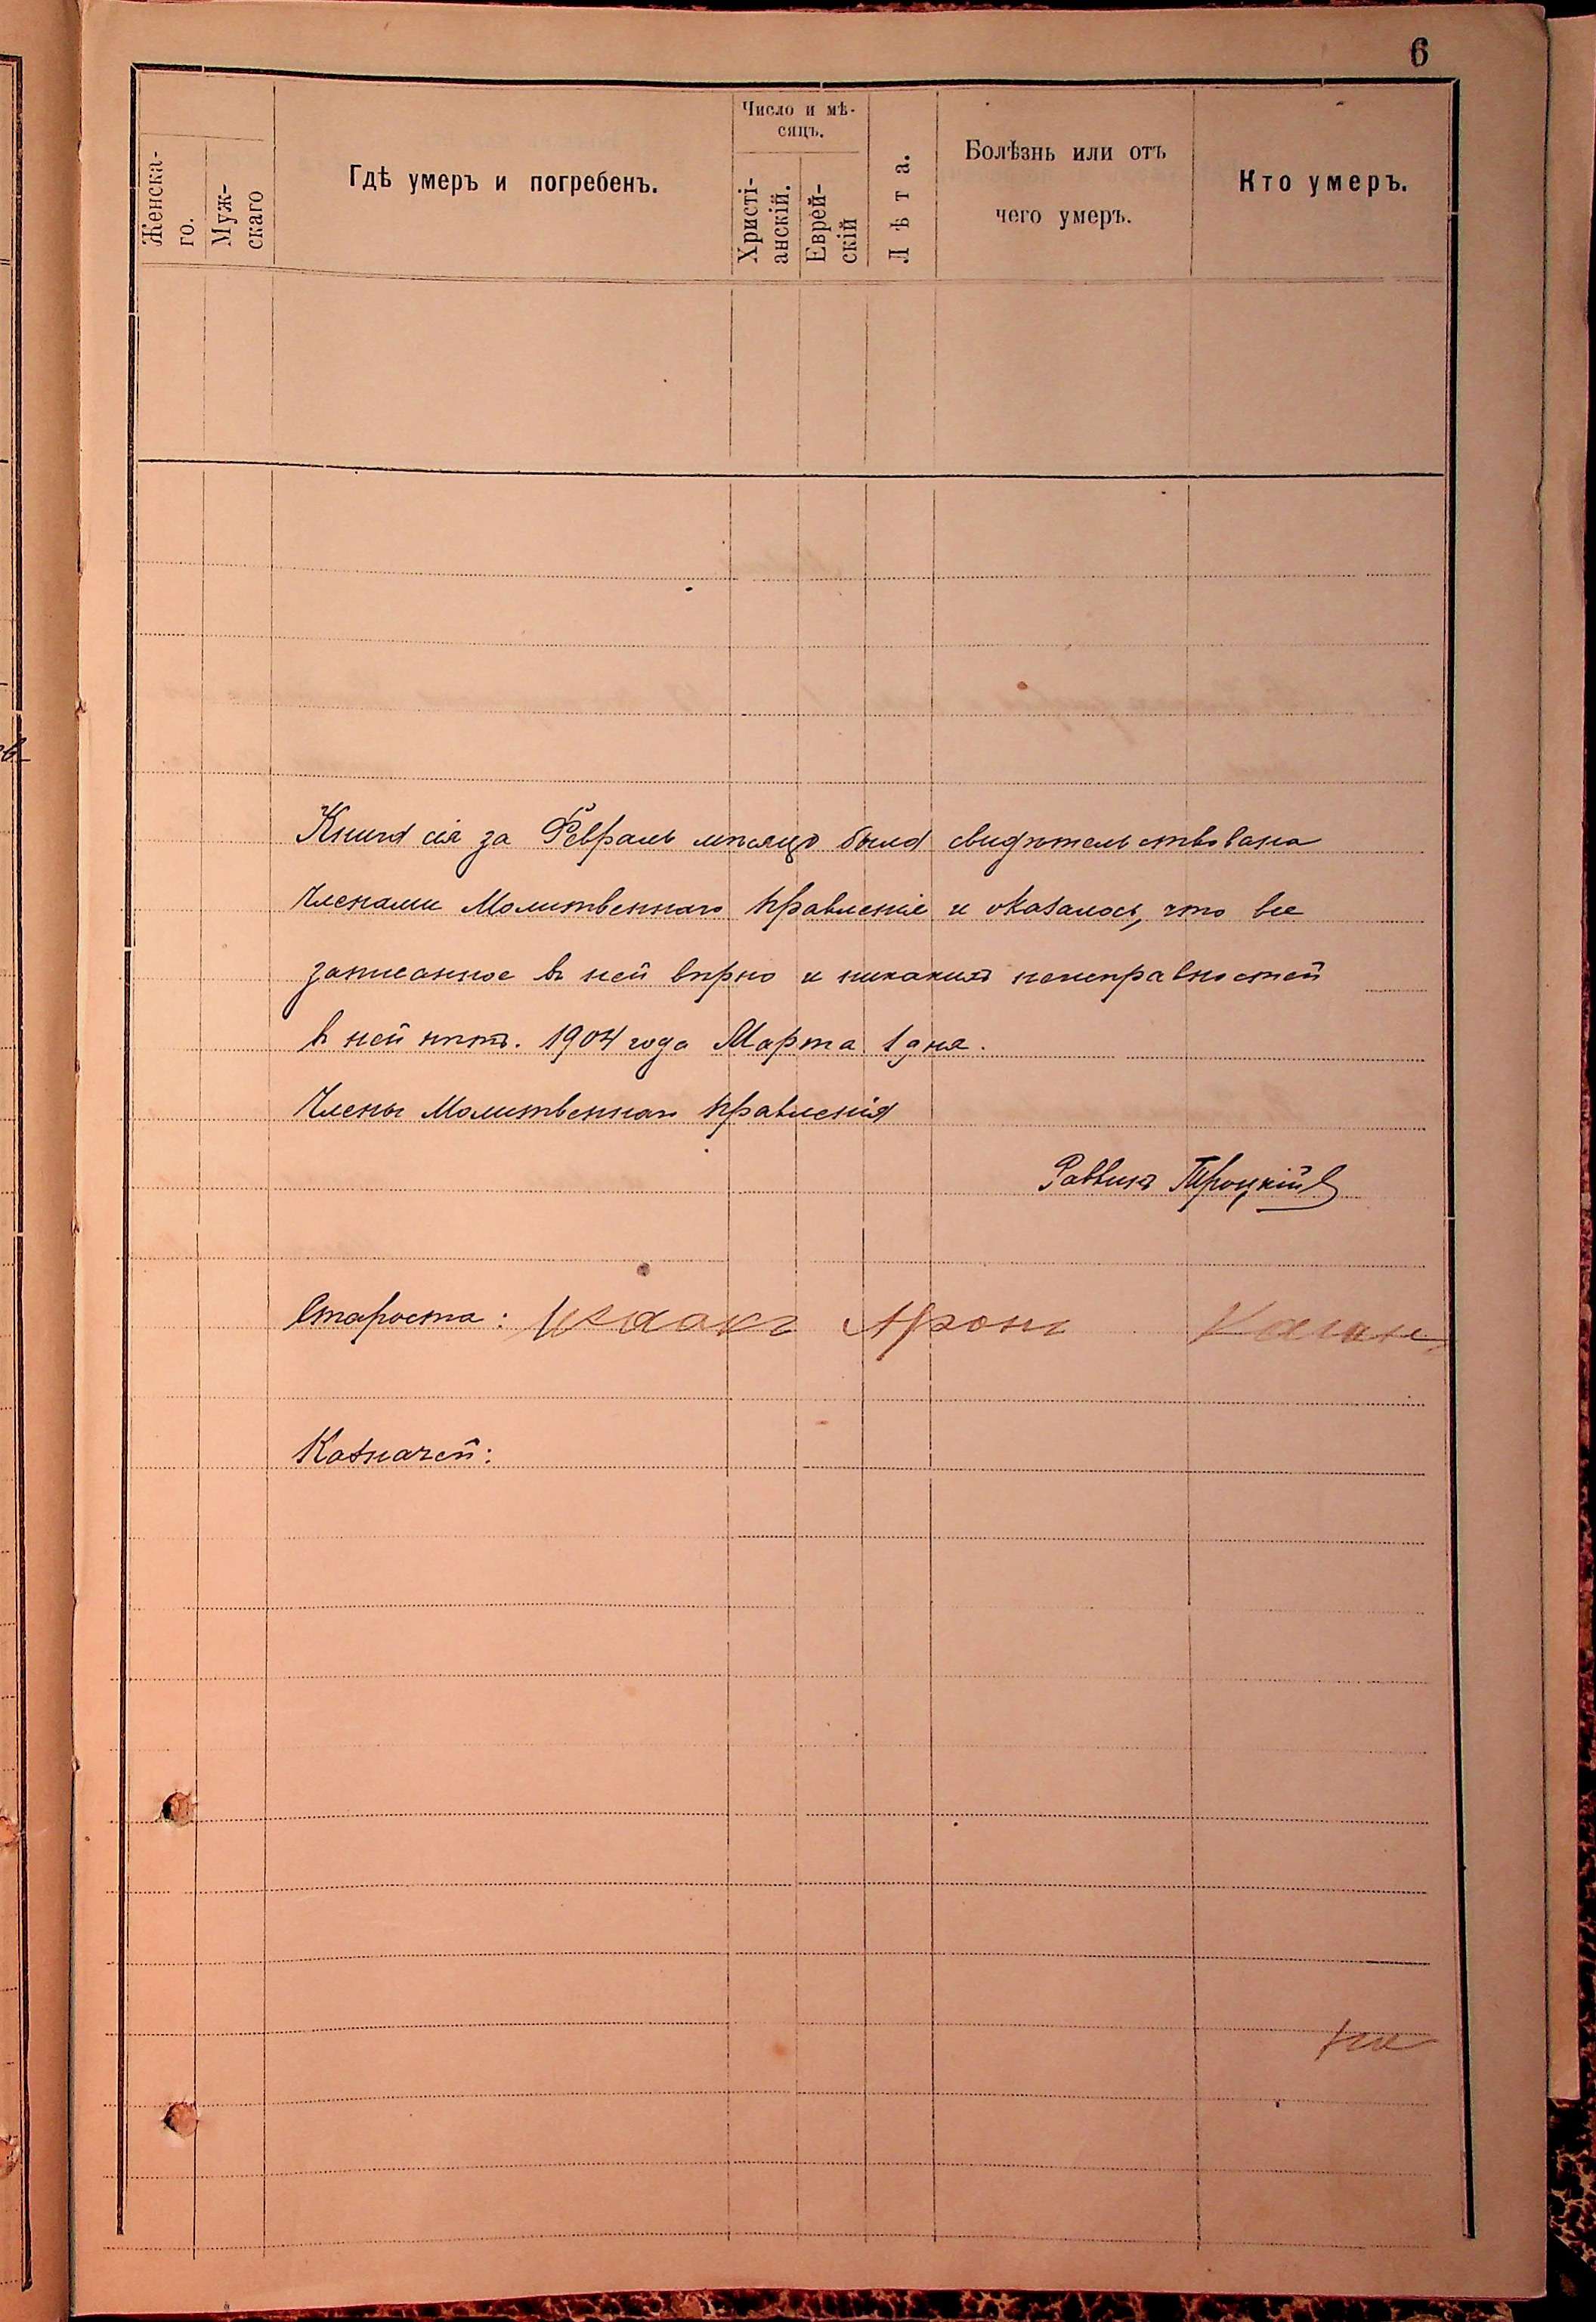 6
Женска-
го.
Муж-
скаго
Гдѣ умеръ и погребенъ.
Число и мѣ-
сяцъ.
Христі-
анскій.
Еврей-
скій
Лѣта.
Болѣзнь или отъ
чего умеръ.
Кто умеръ.
Книга сія за Февраль мѣсяцъ была свидѣтельствована
Членами Молитвеннаго Правленія и оказалось, что все
записанное въ ней вѣрно и никакихъ неисправностей
въ ней нѣтъ. 1904 года Марта 1 дня.
Члены Молитвеннаго Правленія
Раввинъ Троцкій
Староста: Исаакъ Аронъ Каганъ
Казначей: